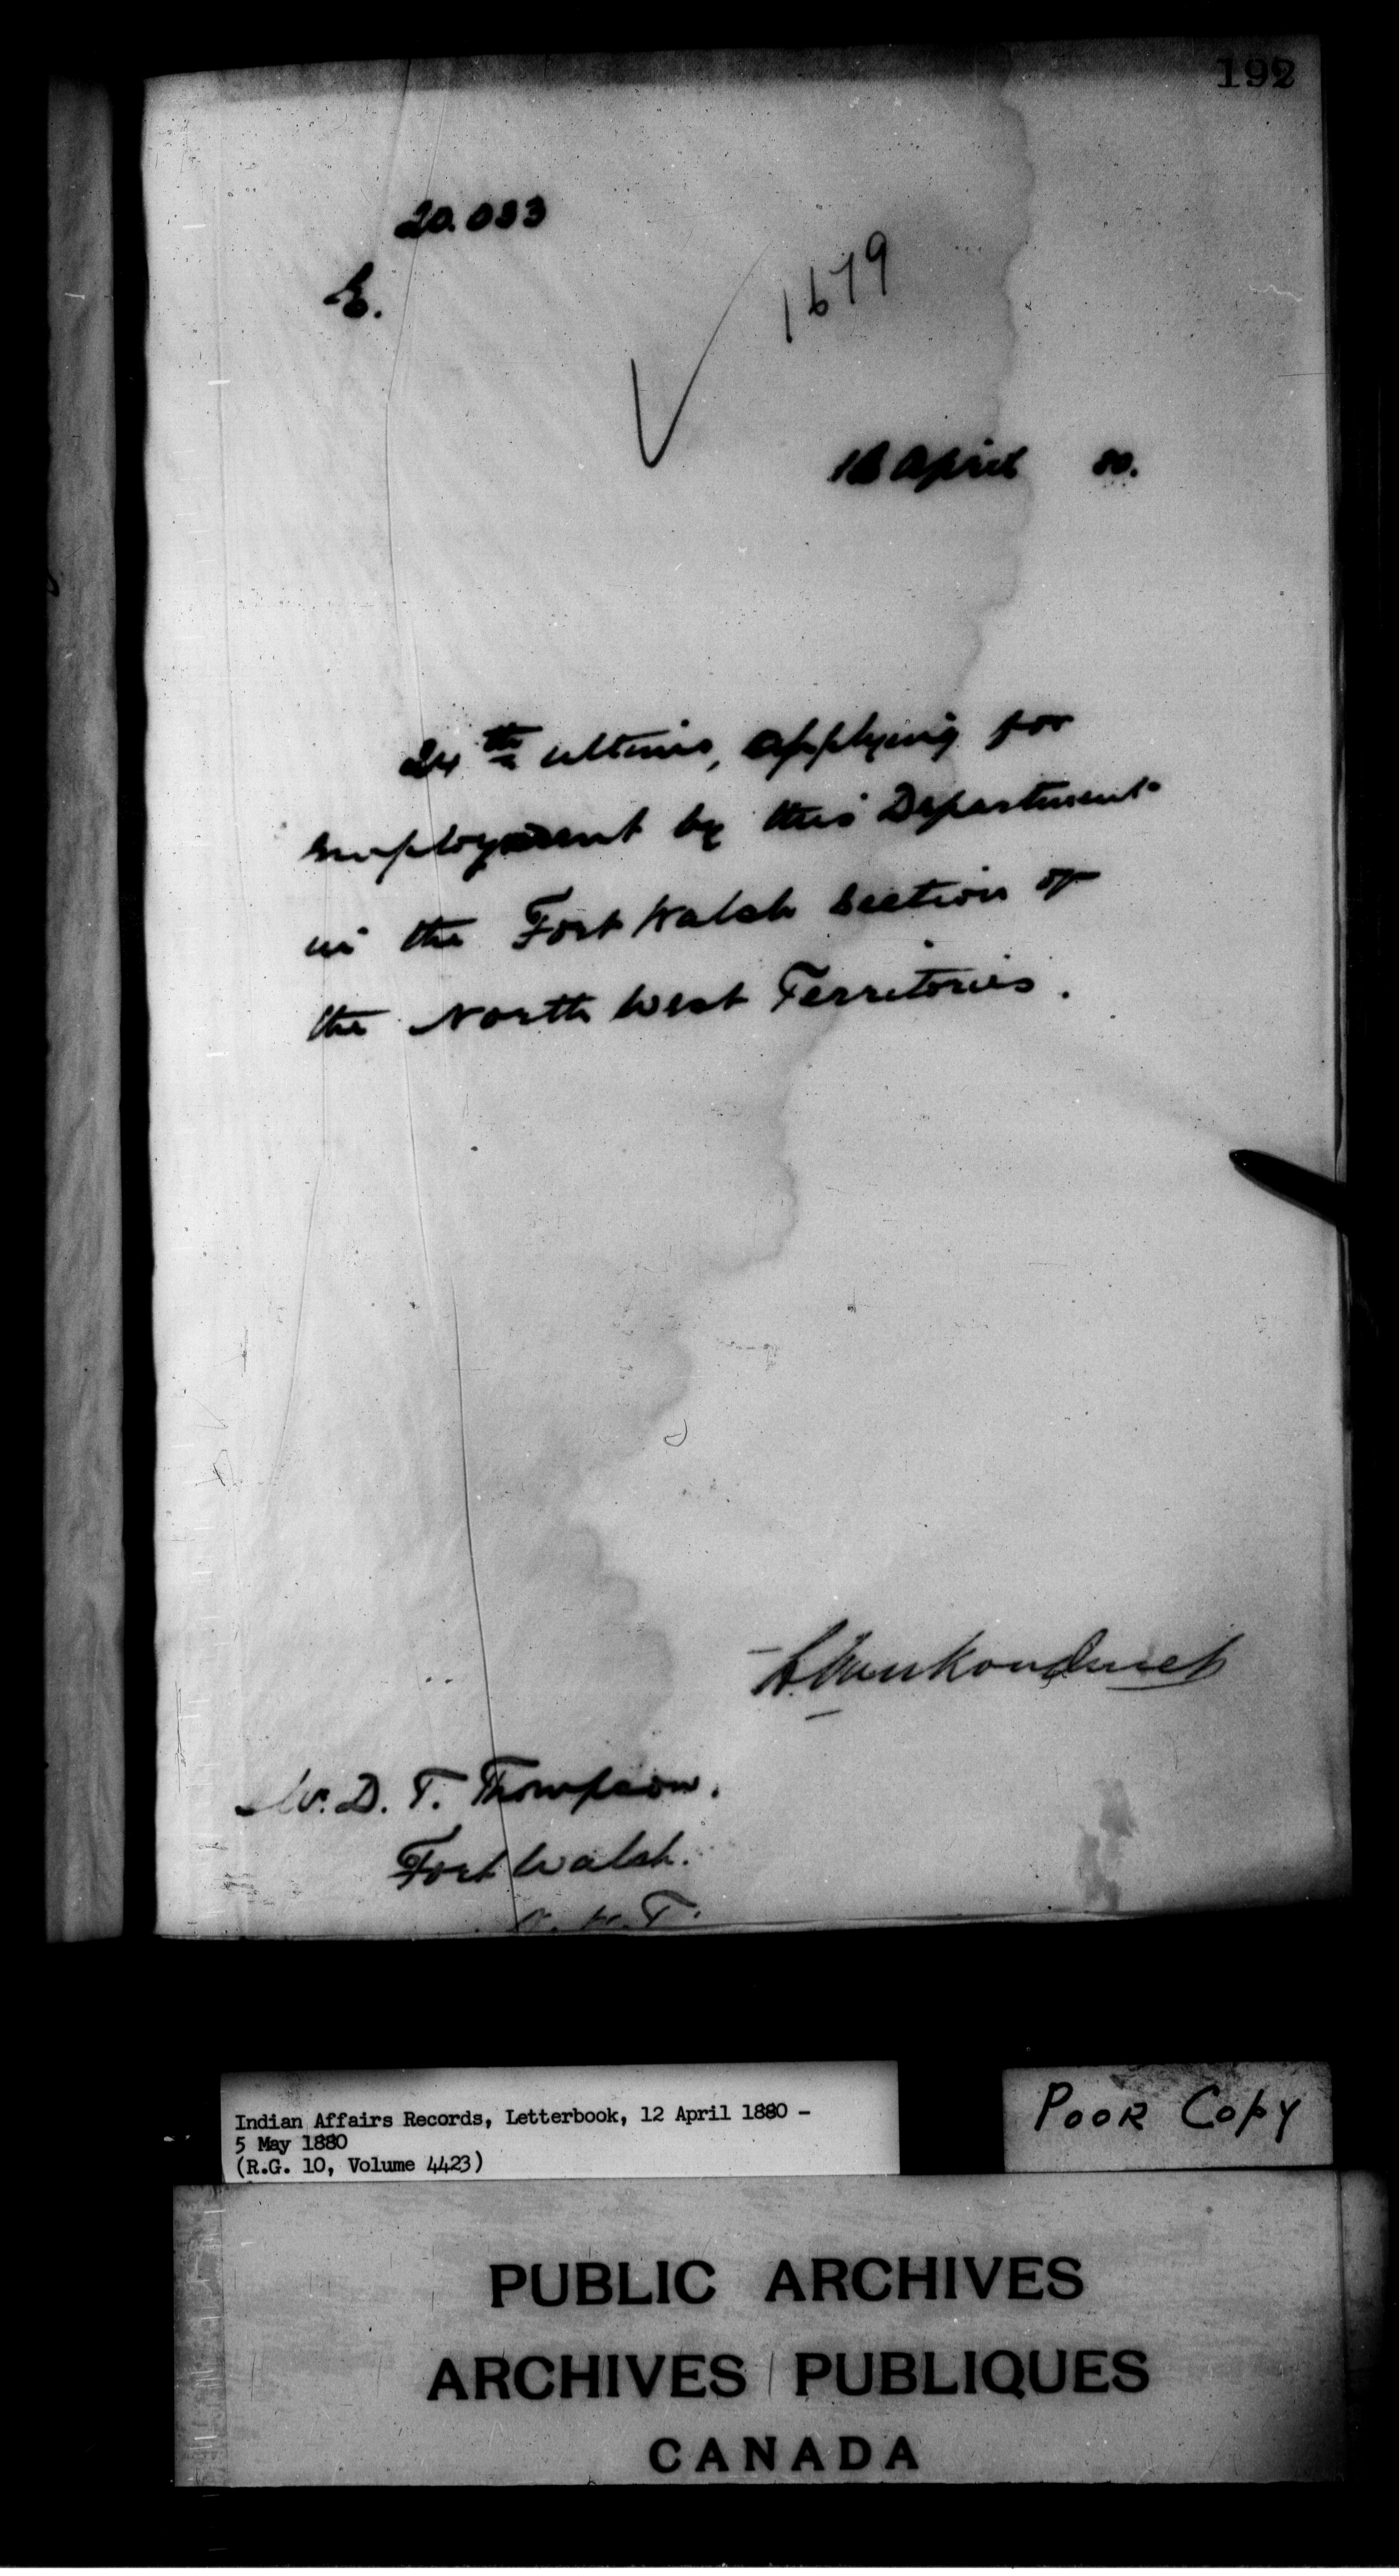 192
20.033
E.
1679
April 80.
24th ultimo, applying for
employment by this Department
in the Fort Walsh Section of
the North West Territories.
L. Vankoughnet
Mr. D. T. Thompson.
Fort Walsh.
N. W. T.
Indian Affairs Records, Letterbook, 12 April 1880 -
5 May 1880
(R.G. 10, Volume 4423)
POOR COPY
PUBLIC ARCHIVES
ARCHIVES PUBLIQUES
CANADA